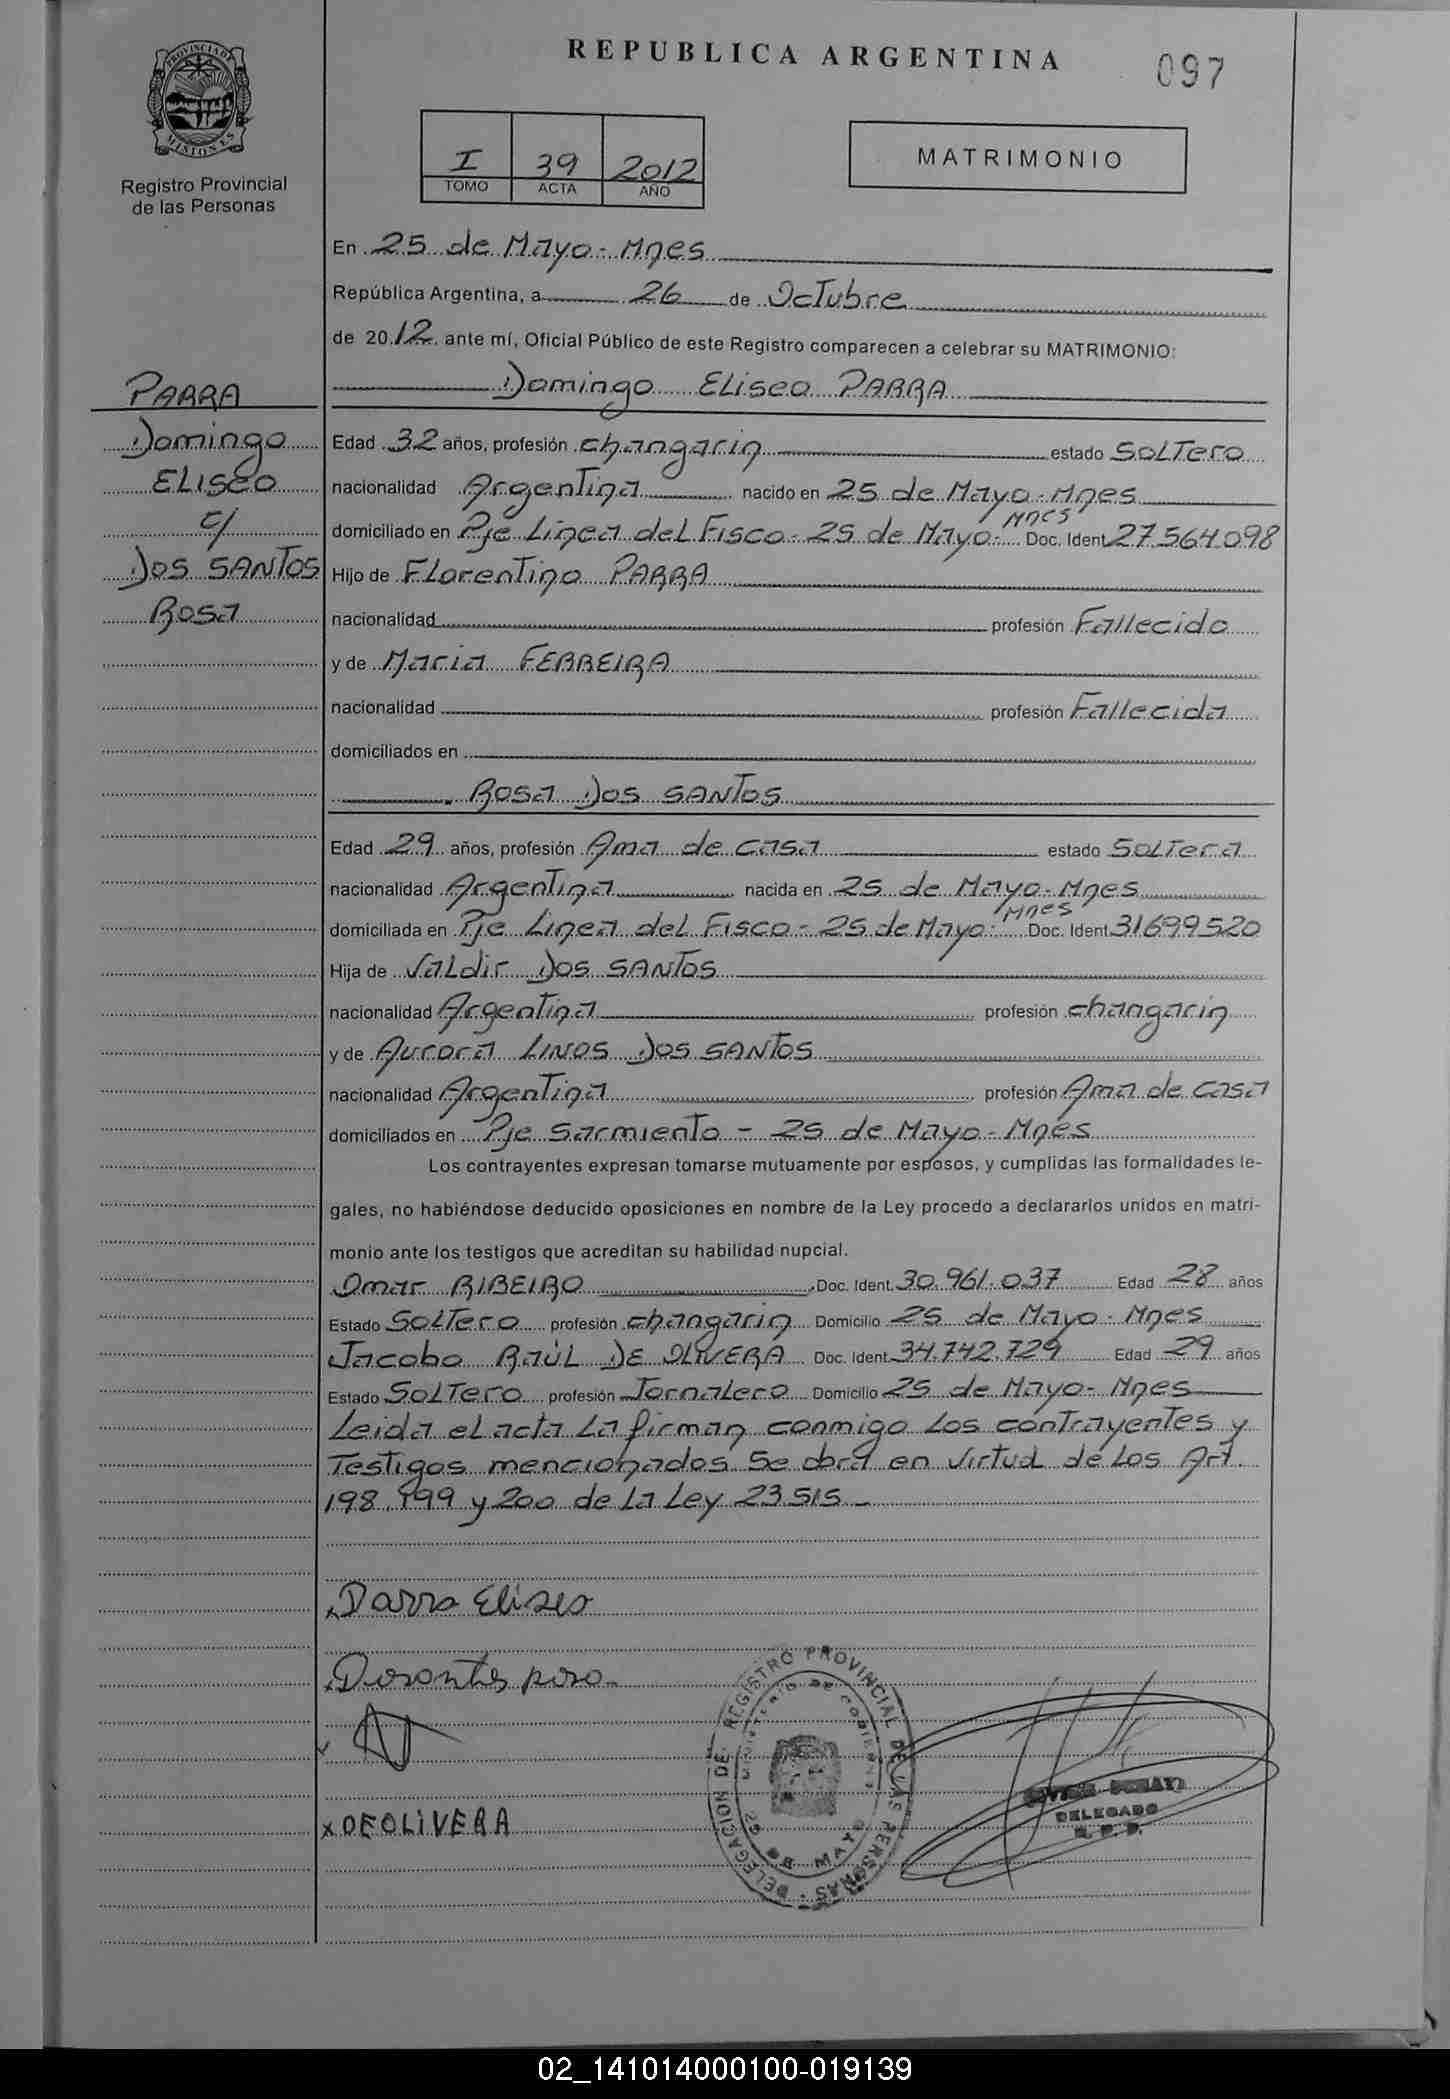 REPUBLICA ARGENTINA
097
PROVINCIA DE
MISIONES
Registro Provincial
de las Personas
I 39 2012
TOMO ACTA AÑO
MATRIMONIO
En 25 de Mayo - Mnes
República Argentina, a 26 de Octubre
de 2012 ante mí, Oficial Público de este Registro comparecen a celebrar su MATRIMONIO:
Domingo Eliseo PARRA
PARRA
Domingo
ELISEO
c/
Dos SANTOS
Rosa
Edad 32 años, profesión changarin estado Soltero
nacionalidad Argentina nacido en 25 de Mayo - Mnes
domiciliado en Pje Linea del Fisco - 25 de Mayo - Mnes Doc. Ident. 27564098
Hijo de Florentino PARRA
nacionalidad profesión Fallecido
y de Maria FERREIRA
nacionalidad profesión Fallecida
domiciliados en
Rosa Dos SANTOS
Edad 29 años, profesión Ama de casa estado Soltera
nacionalidad Argentina nacida en 25 de Mayo - Mnes
domiciliada en Pje Linea del Fisco - 25 de Mayo - Mnes Doc. Ident. 31699520
Hija de Valdir Dos SANTOS
nacionalidad Argentina profesión changarin
y de Aurora LINOS Dos SANTOS
nacionalidad Argentina profesión Ama de casa
domiciliados en Pje Sarmiento - 25 de Mayo - Mnes
Los contrayentes expresan tomarse mutuamente por esposos, y cumplidas las formalidades le-
gales, no habiéndose deducido oposiciones en nombre de la Ley procedo a declararlos unidos en matri-
monio ante los testigos que acreditan su habilidad nupcial.
Omar RIBEIRO Doc. Ident. 30.961.037 Edad 28 años
Estado Soltero profesión changarin Domicilio 25 de Mayo - Mnes
Jacobo RAÚL DE OLIVERA Doc. Ident. 34.742.729 Edad 29 años
Estado Soltero profesión Jornalero Domicilio 25 de Mayo - Mnes
Leida el acta la firman conmigo los contrayentes y
Testigos mencionados Se obra en virtud de los Art.
198, 199 y 200 de la Ley 23.515
Parra Eliseo
Dosantos roso
x DEOLIVERA
DELEGACION DEL REGISTRO PROVINCIAL DE LAS PERSONAS
MINISTERIO DE GOBIERNO
25 DE MAYO
DELEGADO
02_141014000100-019139